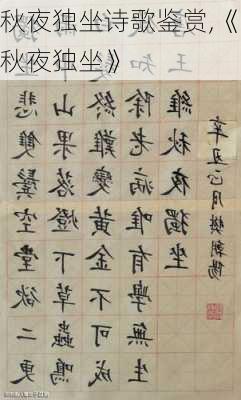 秋夜独坐诗歌鉴赏,《
秋夜独坐》
悲雙鬢空堂欲二更
中山果落燈下草蟲鳴
髮終難變黃金不可成
知除老病唯有學無生
王維秋夜獨坐
辛丑正月樊朝陽